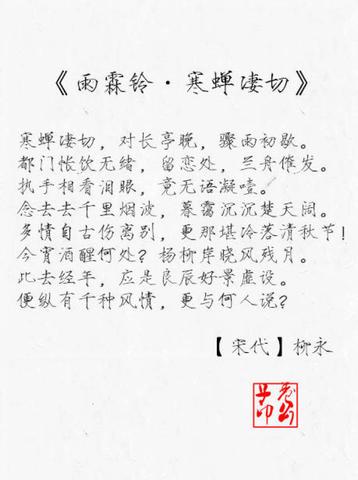 《雨霖铃·寒蝉凄切》
寒蝉凄切，对长亭晚，骤雨初歇。
都门怅饮无绪，留恋处，兰舟催发。
执手相看泪眼，竟无语凝噎。
念去去千里烟波，暮霭沉沉楚天阔。
多情自古伤离别，更那堪冷落清秋节！
今宵酒醒何处？杨柳岸晓风残月。
此去经年，应是良辰好景虚设。
便纵有千种风情，更与何人说？
【宋代】柳永